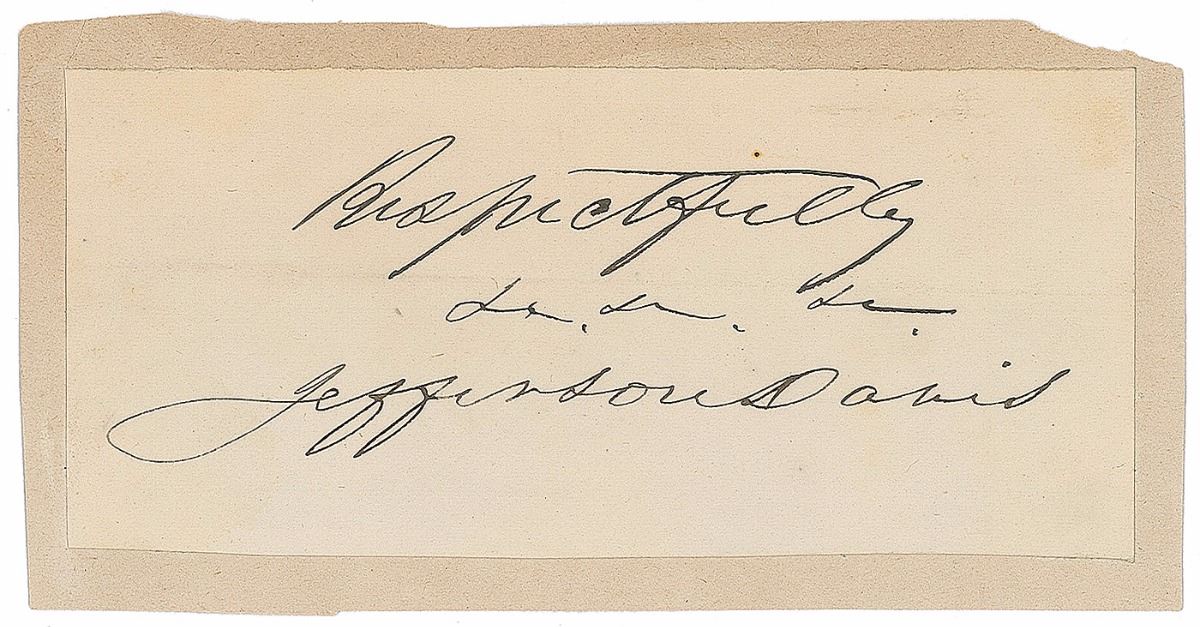 Respectfully
&c. &c. &c.
Jefferson Davis